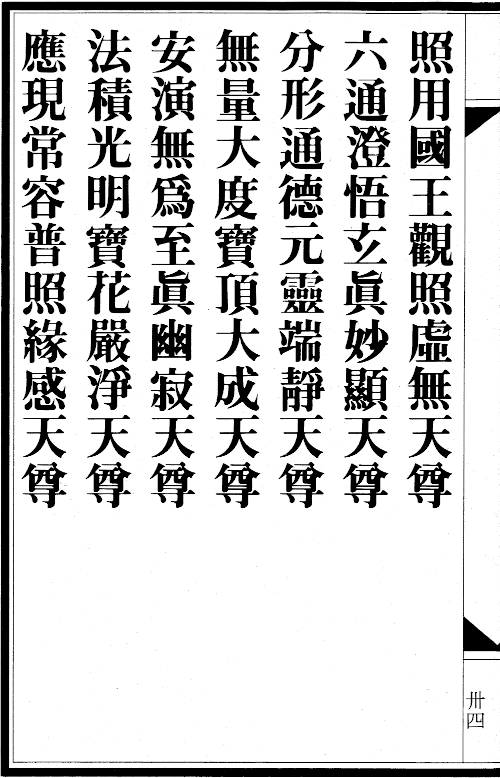 照用國王觀照虛無天尊
六通澄悟玄眞妙顯天尊
分形通德元靈端靜天尊
無量大度寶頂大成天尊
安演無爲至眞幽寂天尊
法積光明寶花嚴淨天尊
應現常容普照緣感天尊
卅四